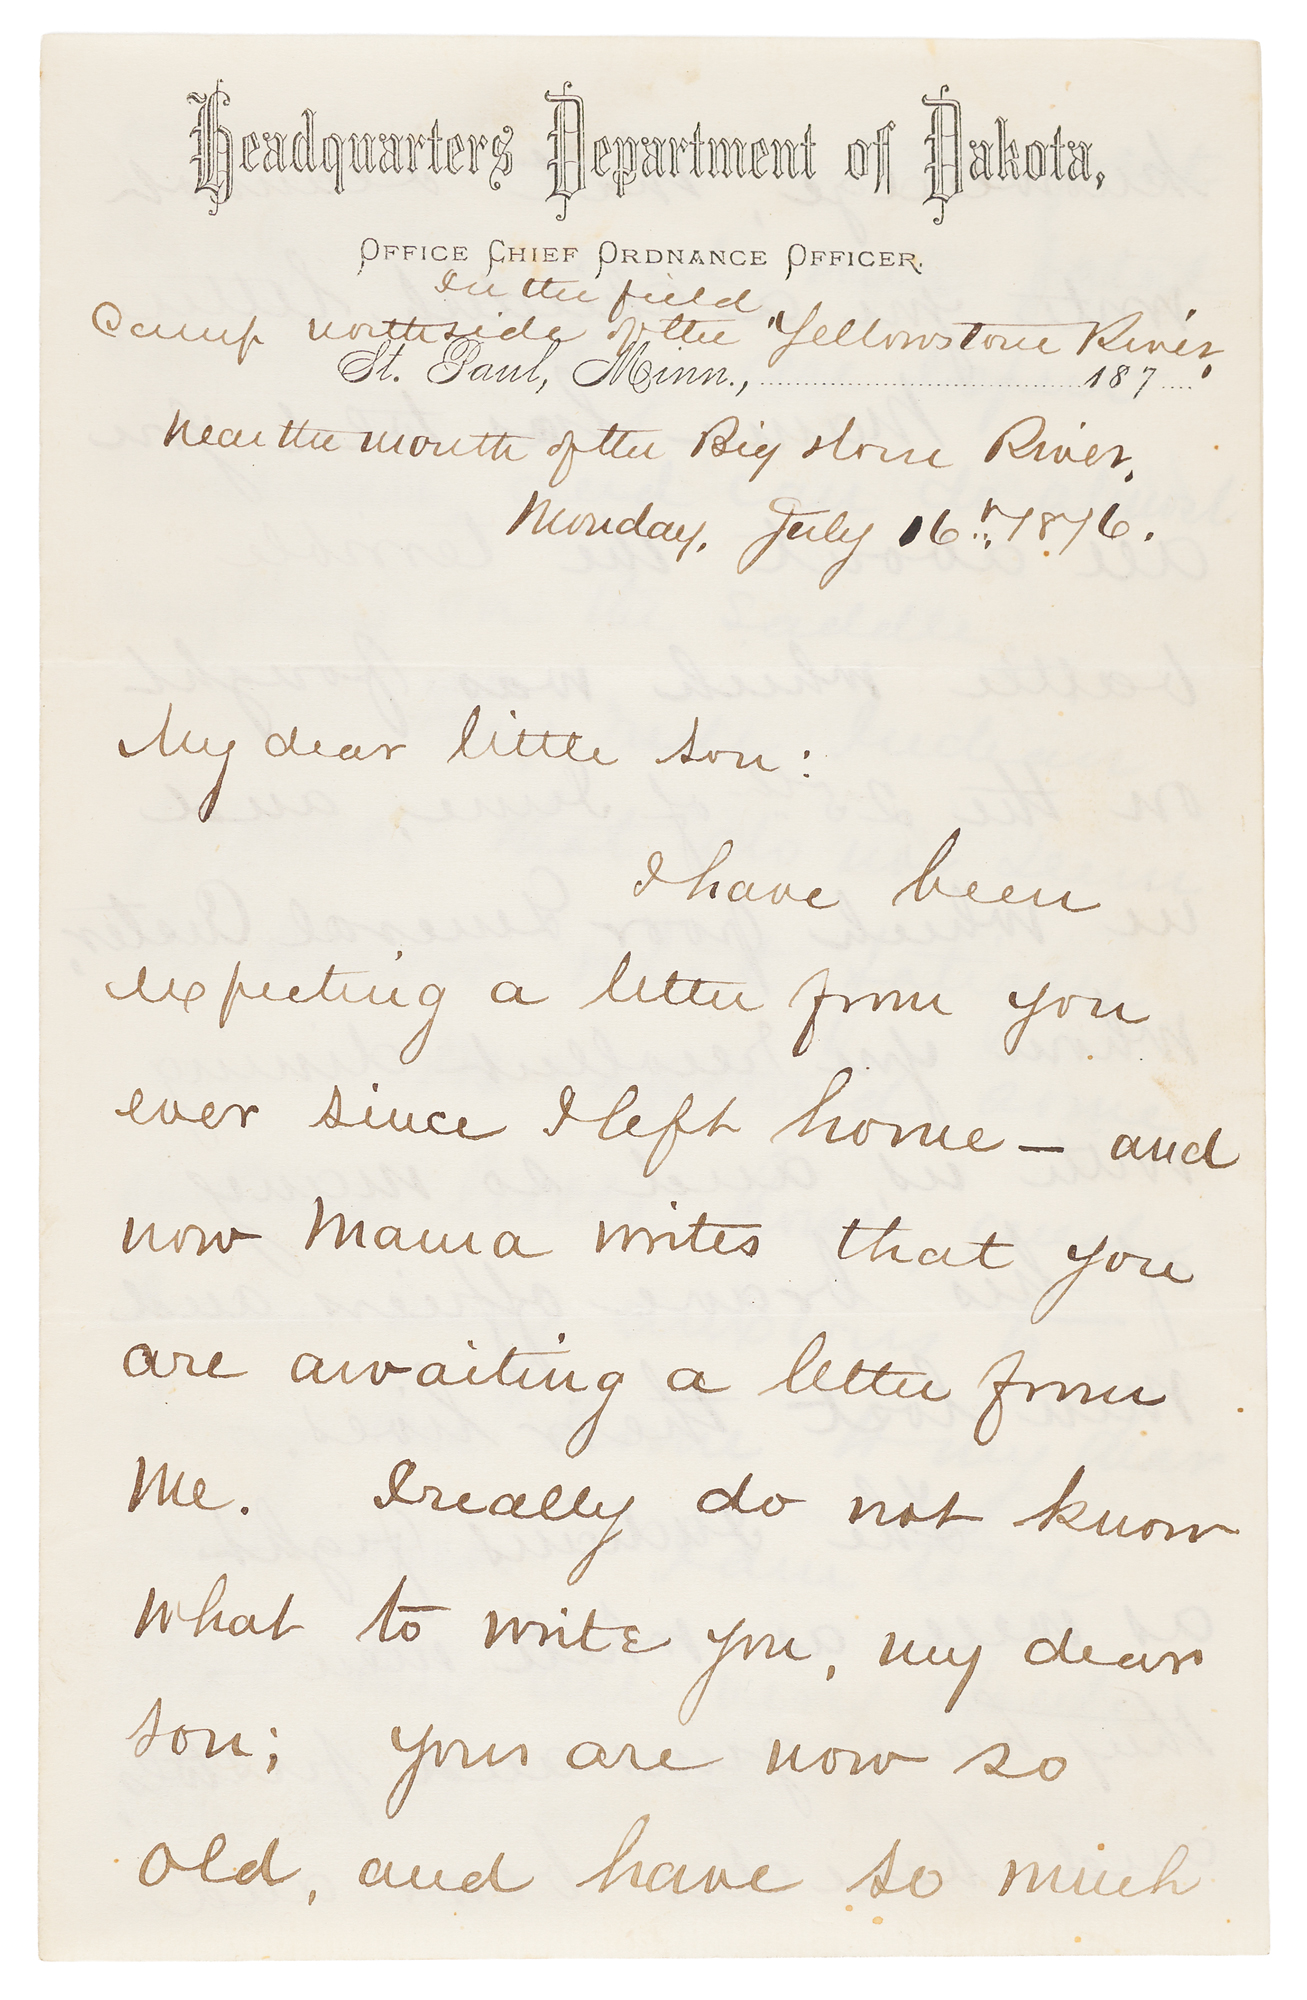 Headquarters Department of Dakota,
OFFICE CHIEF ORDNANCE OFFICER.
In the field
Camp northside of the Yellowstone River,
St. Paul, Minn., 187
Near the mouth of the Big Horn River,
Monday, July 16th, 1876.
My dear little son:
I have been
expecting a letter from you
ever since I left home — and
now Mama writes that you
are awaiting a letter from
me. I really do not know
what to write you, my dear
son; your are now so
old, and have so much